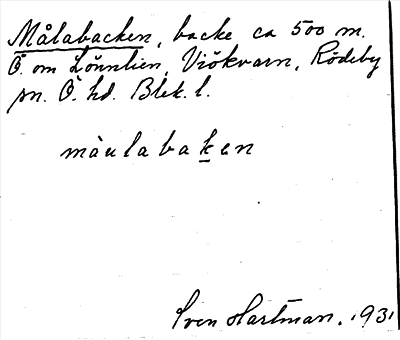 Målabacken, backe ca 500 m.
Ö. om Lönnlien, Viökvarn, Rödeby
sn. Ö. hd. Blek. l.
màulabaken
Sven Hartman. 1931